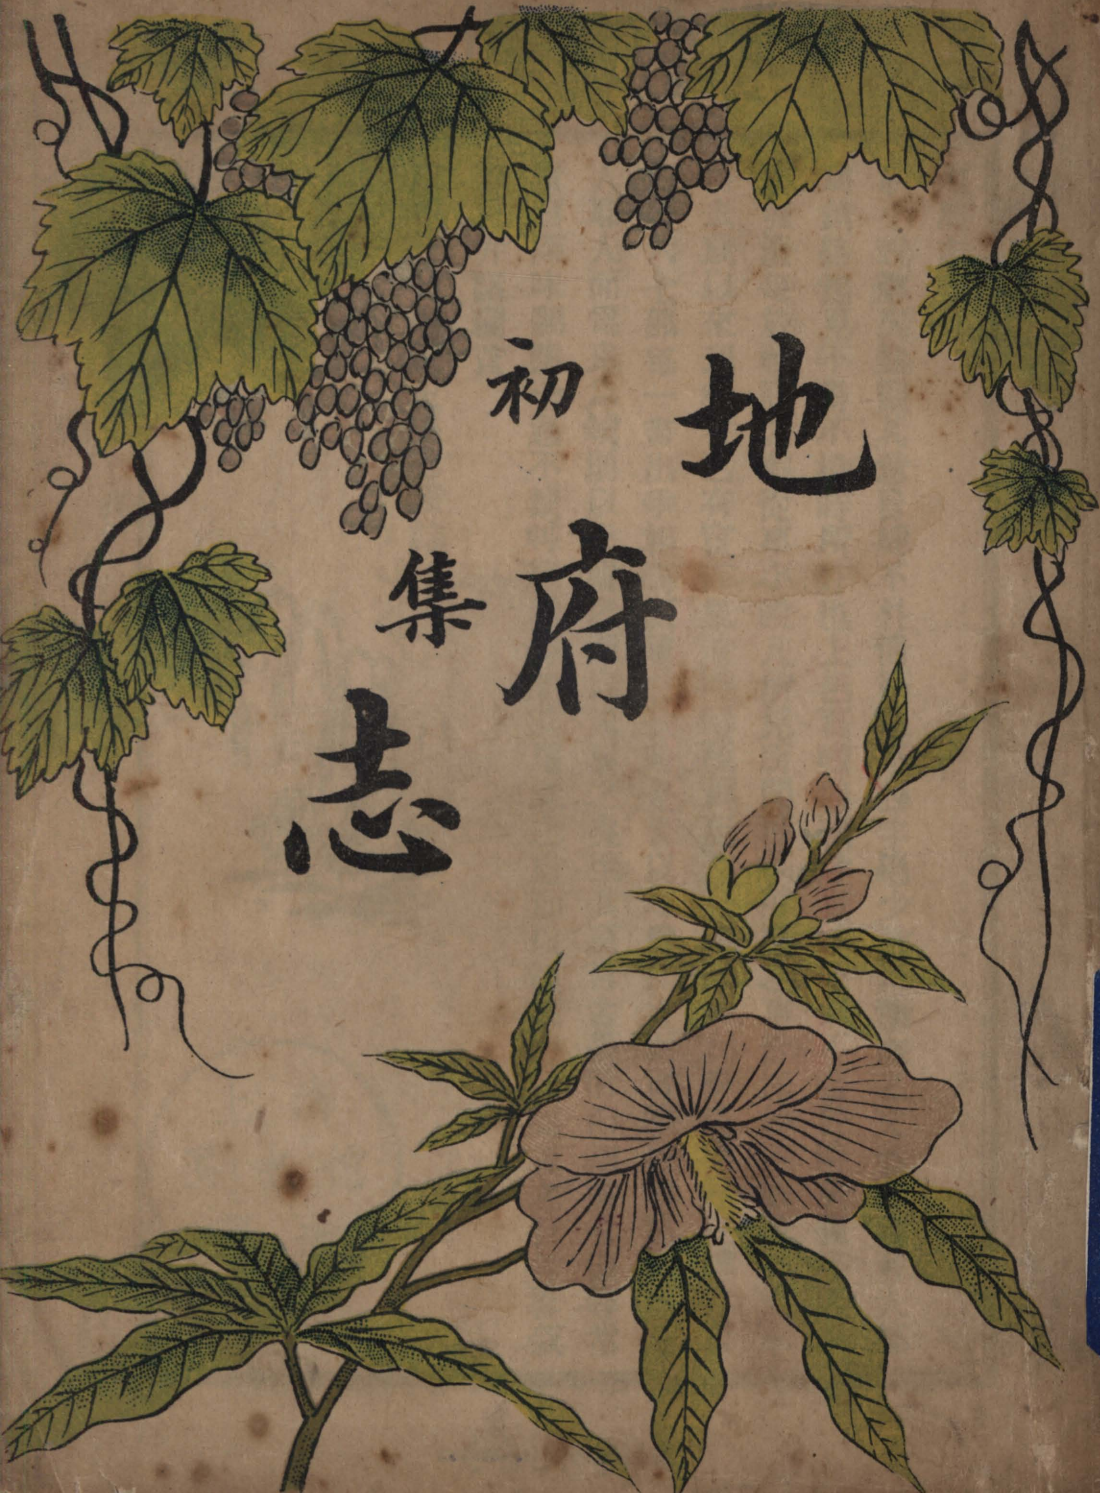 地府志
初集